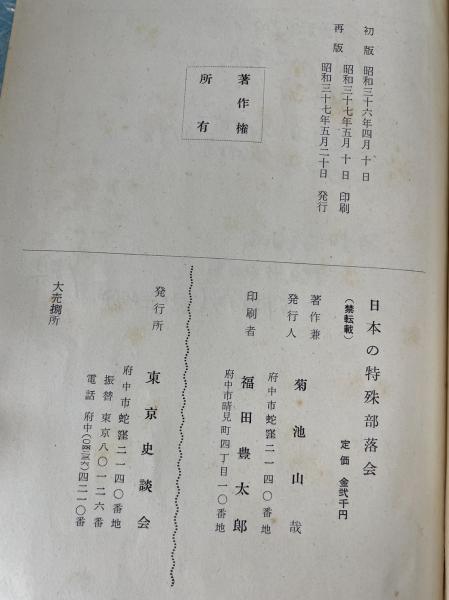 初版 昭和三十六年四月十日
再版 昭和三十七年五月十日 印刷
昭和三十七年五月二十日 発行
著作権
所有
日本の特殊部落会
(禁転載)
定価 金弐千円
著作兼
発行人
菊池山哉
府中市蛇窪二一四〇番地
印刷者
福田豊太郎
府中市晴見町四丁目一〇番地
発行所
東京史談会
府中市蛇窪二一四〇番地
振替 東京八〇一二六番
電話 府中 四二一〇番
大売捌所